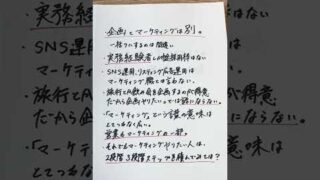 企画とマーケティングは別。
一括りにするのは間違い
・実務経験者
・SNS運用、リスティング広告運用は
マーケティング職とは言わない。
・旅行とか飲み会を企画するのが得意
だから企画やりたいっては話にならない。
・「マーケティング」という言葉の意味は
とてつもなく広い。
営業もマーケティングの一部。
・それでもマーケティングやりたい人は、
2段階3段階ステップを踏んでみては?